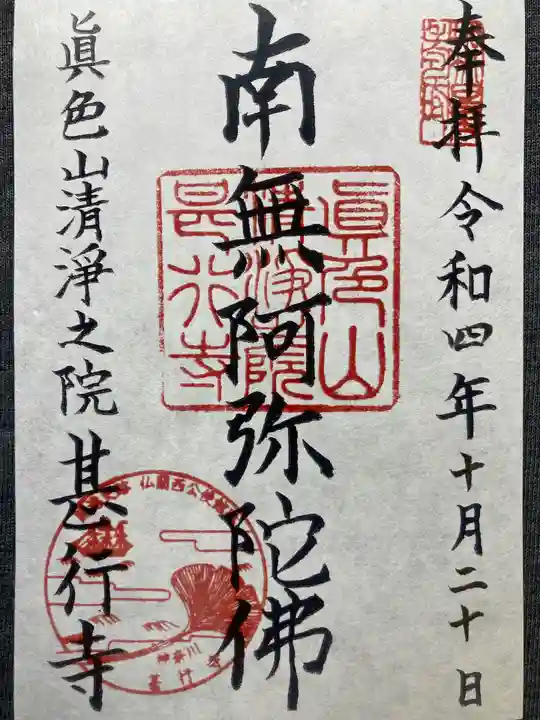 奉拝 令和四年十月二十日
南無阿弥陀佛
眞色山
清浄院
甚行寺
眞色山清淨之院 甚行寺
仏蘭西公使館
神奈川
甚行寺